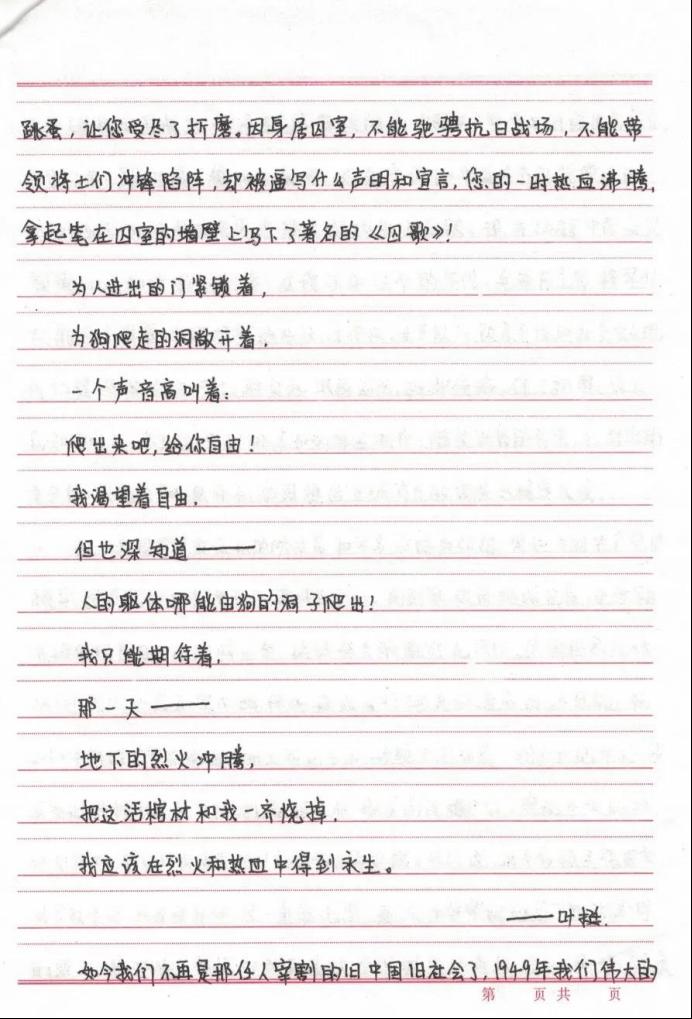 跳蚤，让您受尽了折磨。因身居囚室，不能驰骋抗日战场，不能带
领将士们冲锋陷阵，却被逼写什么声明和宣言，您的一时热血沸腾，
拿起笔在囚室的墙壁上写下了著名的《囚歌》！
为人进出的门紧锁着，
为狗爬走的洞敞开着，
一个声音高叫着：
爬出来吧，给你自由！
我渴望着自由，
但也深知道——
人的躯体哪能由狗的洞子爬出！
我只能期待着，
那一天——
地下的烈火冲腾，
把这活棺材和我一齐烧掉，
我应该在烈火和热血中得到永生。
——叶挺.
如今我们不再是那任人宰割的旧中国旧社会了，1949年我们伟大的
第 页 共 页